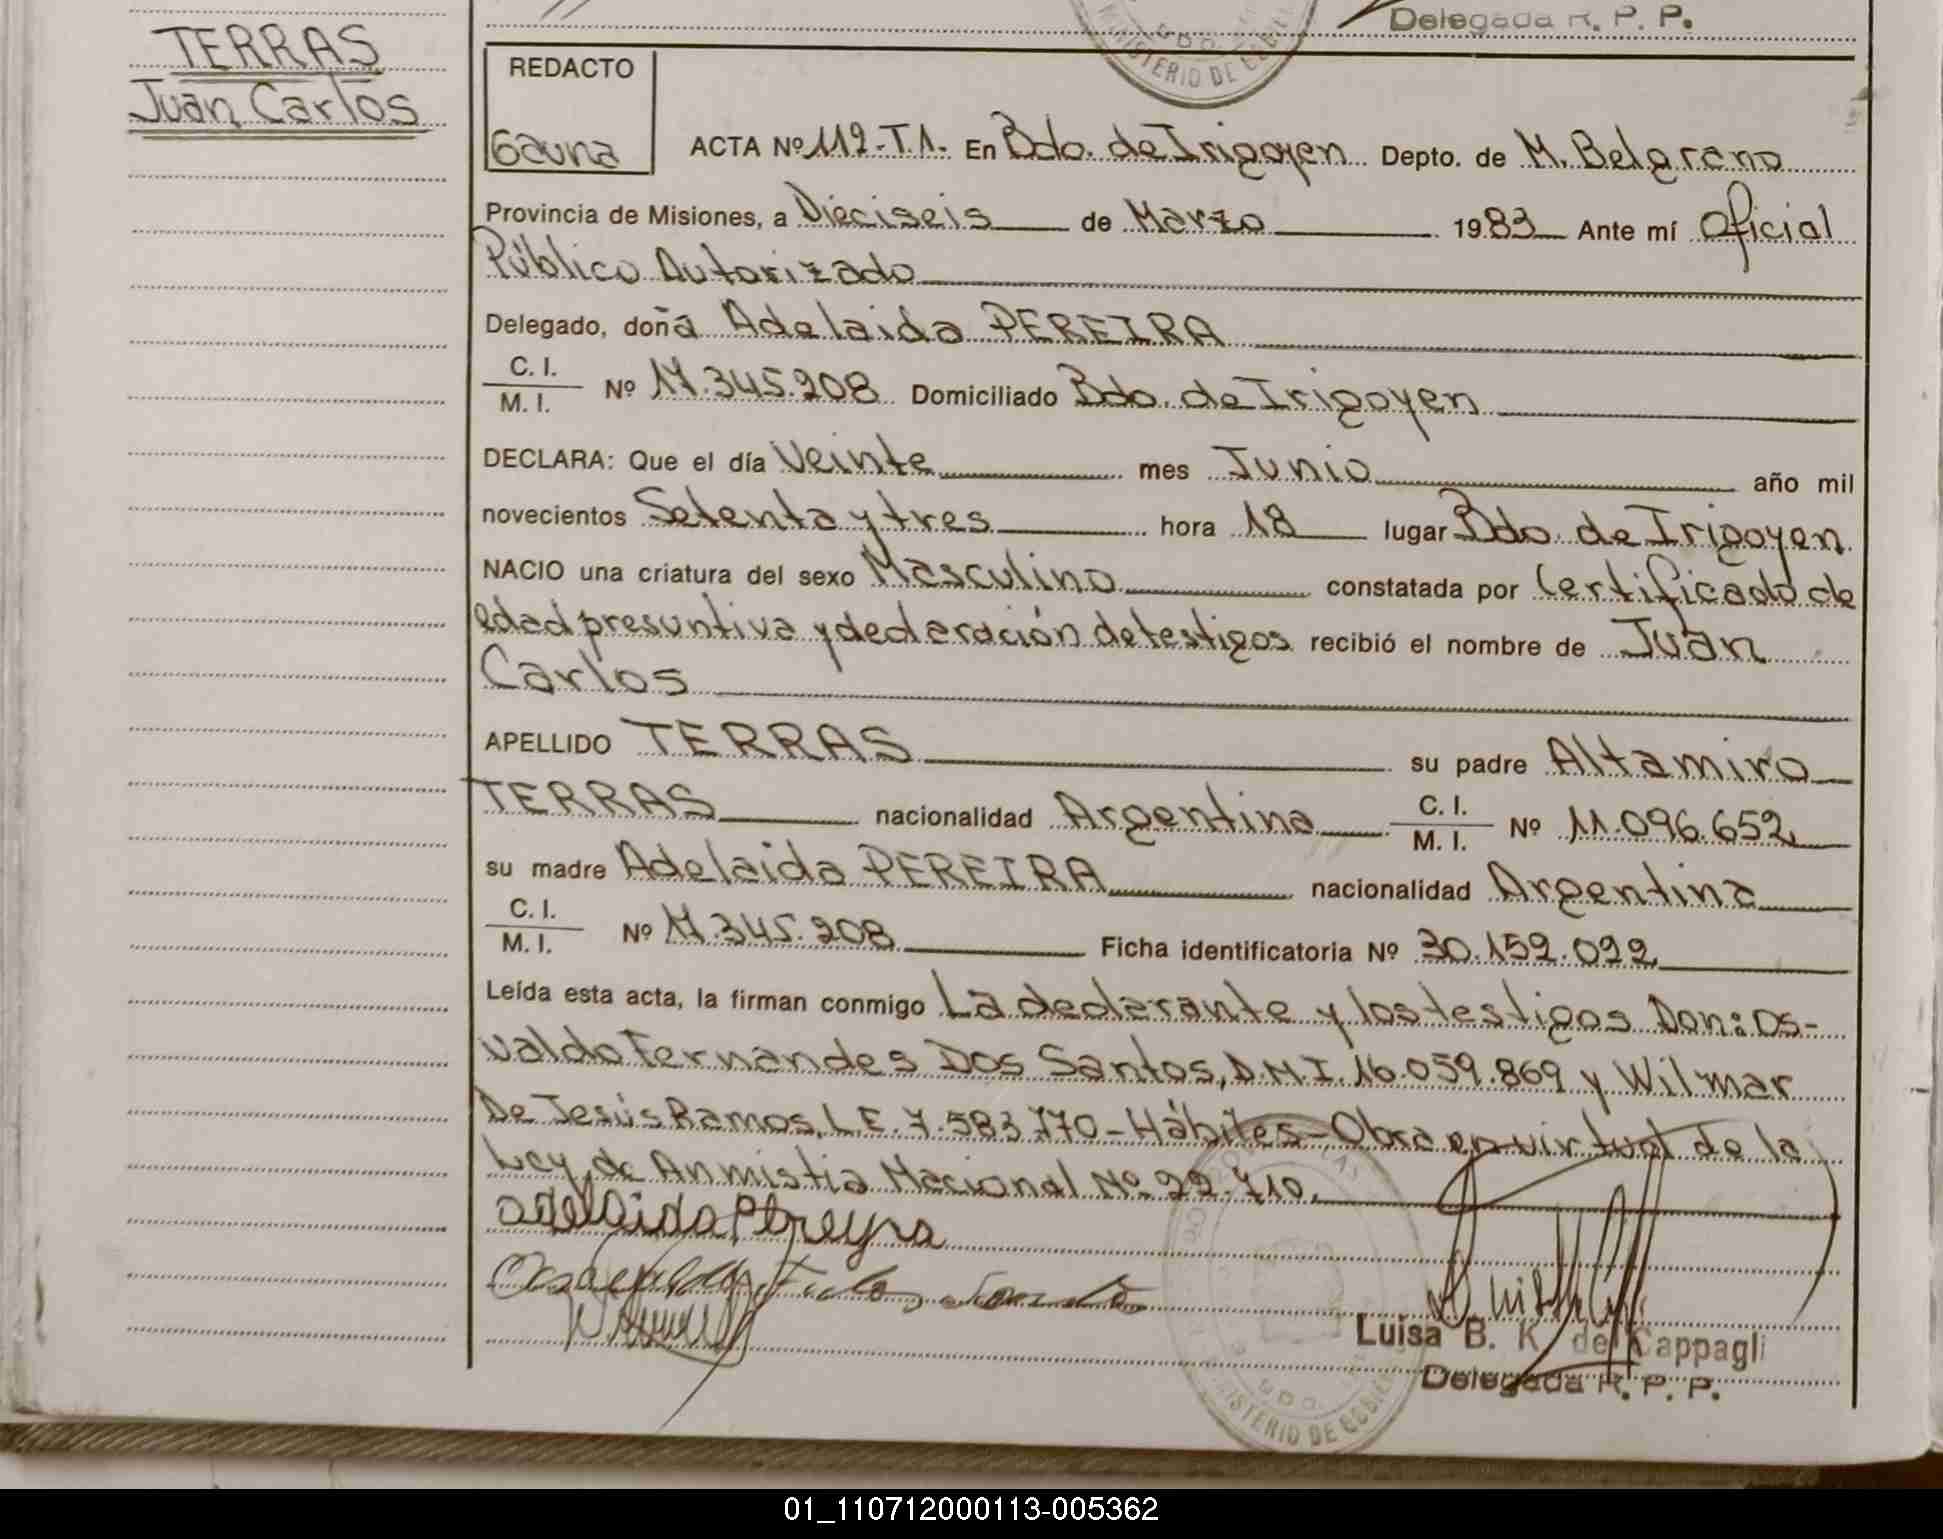 Delegada R. P. P.
MINISTERIO DE GOBIER
TERRAS
Juan Carlos
REDACTO
Gauna
ACTA Nº 112-T.1. En Bdo. de Irigoyen Depto. de M. Belgrano
Provincia de Misiones, a Dieciseis de Marzo 1983 Ante mí Oficial
Público Autorizado
Delegado, doña Adelaida PEREIRA
C. I.
M. I. Nº 17.345.208 Domiciliado Bdo. de Irigoyen
DECLARA: Que el día Veinte mes Junio año mil
novecientos Setenta y tres hora 18 lugar Bdo. de Irigoyen
NACIO una criatura del sexo Masculino constatada por Certificado de
edad presuntiva y declaración de testigos recibió el nombre de Juan
Carlos
APELLIDO TERRAS su padre Altamiro
TERRAS nacionalidad Argentina C. I.
M. I. Nº 11.096.652
su madre Adelaida PEREIRA nacionalidad Argentina
C. I.
M. I. Nº 17.345.208 Ficha identificatoria Nº 30.152.022
Leída esta acta, la firman conmigo La declarante y los testigos Don: Os-
valdo Fernandes Dos Santos, D.N.I. 16.059.869 y Wilmar
De Jesús Ramos, L.E. 7.583.770- Hábiles- Obra en virtud de la
Ley de Anmistia Nacional Nº 22.710.
adelaida Pereyra
Luisa B. K de Cappagli
Delegada R. P. P.
MINISTERIO DE GOBIER
01_110712000113-005362